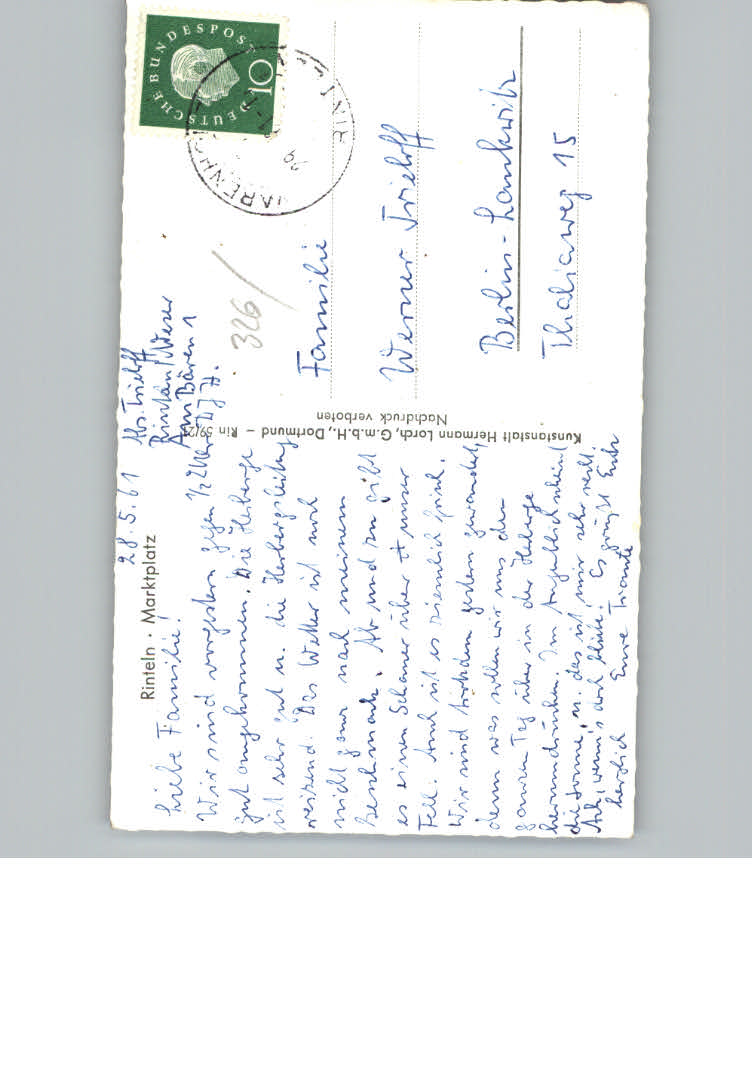 Rinteln · Marktplatz
28.5.61
Abs. Trieloff
Rinteln/Weser
Am Bären 1
DJH.
Liebe Familie!
Wir sind vorgestern gegen 1/2 Uhr
gut angekommen. Die Herberge
ist sehr gut u. die Herbergsleitung
reizend. Das Wetter ist noch
nicht ganz nach meinem
Geschmack. Ab und zu gibt
es einen Schauer über unser
Fell. Auch ist es ziemlich frisch.
Wir sind trotzdem gestern gewandert,
denn was sollen wir uns den
ganzen Tag über in der Herberge
herumdrücken. Im Augenblick scheint
die Sonne, u. das ist mir sehr recht.
Ach, wenn's doch bliebe! Es grüßt Euch
herzlich Eure Traute
Kunstanstalt Hermann Lorch, G.m.b.H., Dortmund – Rin 59/21
Nachdruck verboten
326/
DEUTSCHE BUNDESPOST
10
Familie
Werner Trieloff
Berlin-Lankwitz
Thaliaweg 15